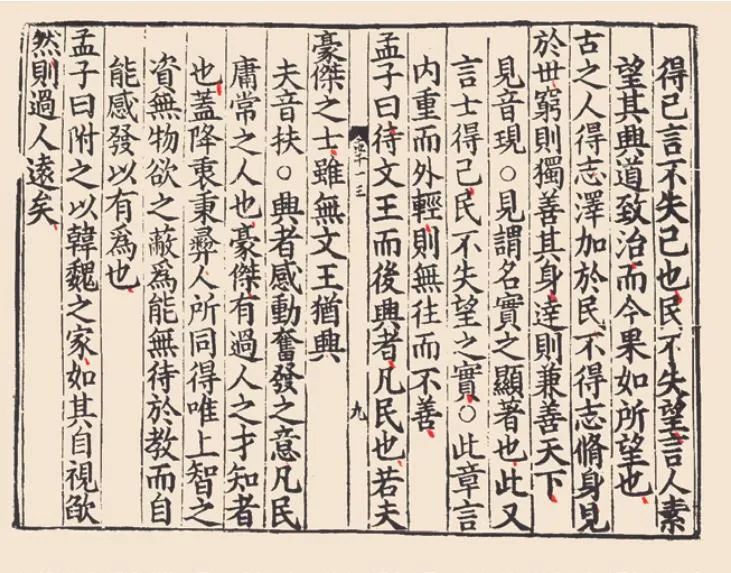 得己言不失己也民不失望言人素
望其興道致治而今果如所望也
古之人得志澤加於民不得志脩身見
於世窮則獨善其身達則兼善天下
見音現○見謂名實之顯著也此又
言士得己民不失望之實○此章言
內重而外輕則無往而不善
孟子曰待文王而後興者凡民也若夫
九
豪傑之士雖無文王猶興
夫音扶○興者感動奮發之意凡民
庸常之人也豪傑有過人之才知者
也蓋降衷秉彝人所同得唯上智之
資無物欲之蔽爲能無待於教而自
能感發以有爲也
孟子曰附之以韓魏之家如其自視欿
然則過人遠矣